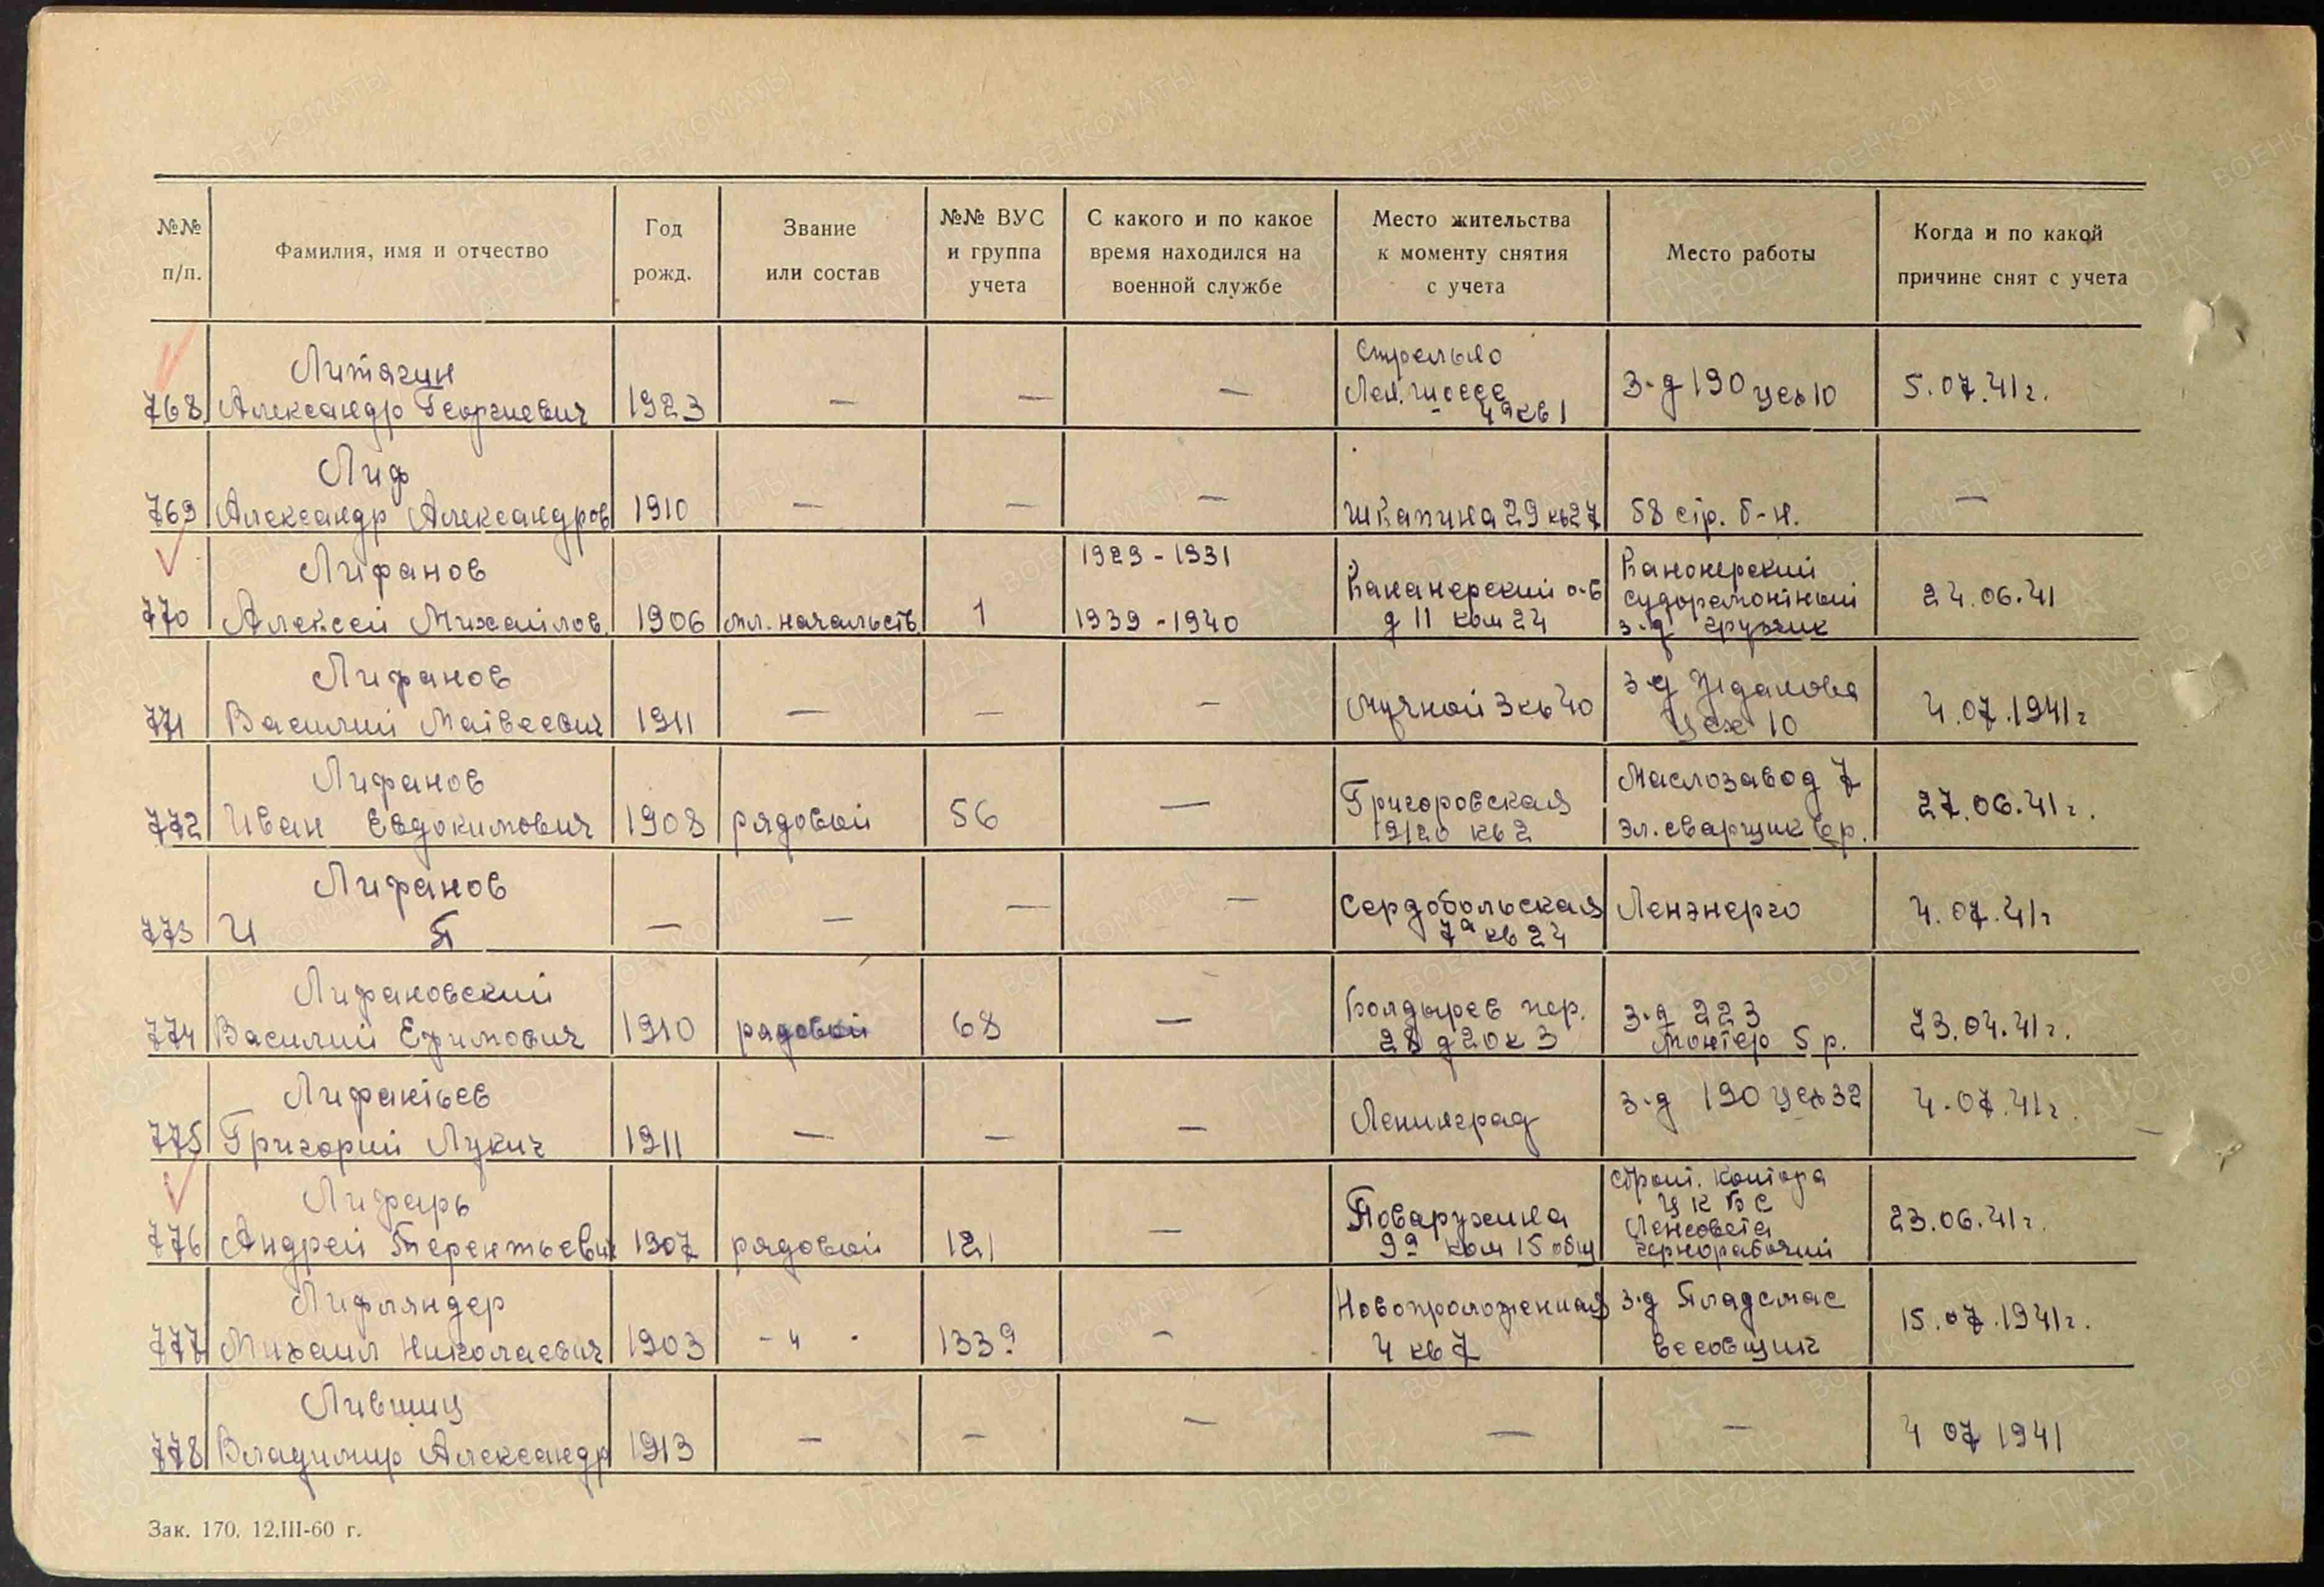 №№ п/п. | Фамилия, имя и отчество | Год рожд. | Звание или состав | №№ ВУС и группа учета | С какого и по какое время находился на военной службе | Место жительства к моменту снятия с учета | Место работы | Когда и по какой причине снят с учета
768 | Литягин Александр Георгиевич | 1923 | — | — | — | Стрельно Лен. шоссе 4а кв 1 | З-д 190 цех 10 | 5.07.41г.
769 | Лиф Александр Александров | 1910 | — | — | — | Шкапина 29 кв 27 | 58 стр. б-н. | —
770 | Лифанов Алексей Михайлов. | 1906 | мл. начальств | 1 | 1929 - 1931 1939 - 1940 | Канонерский о-в д 11 ком 24 | Канонерский судоремонтный з-д грузчик | 24.06.41
771 | Лифанов Василий Матвеевич | 1911 | — | — | — | Мучной 3 кв 40 | з-д Жданова цех 10 | 4.07.1941г
772 | Лифанов Иван Евдокимович | 1908 | рядовой | 56 | — | Григоровская 19/20 кв 2 | Маслозавод 7 эл. сварщик 6р. | 27.06.41г.
773 | Лифанов И П | — | — | — | — | Сердобольская 7а кв 24 | Ленэнерго | 4.07.41г
774 | Лифановский Василий Ефимович | 1910 | рядовой | 68 | — | Болдырев пер. д 20 к 3 | З-д 223 монтер 5 р. | 23.04.41г.
775 | Лифантьев Григорий Лукич | 1911 | — | — | — | Ленинград | з-д 190 цех 32 | 4.07.41г.
776 | Лифарь Андрей Терентьевич | 1907 | рядовой | 121 | — | 9а ком 15 общ | строит. контора Ленсовета чернорабочий | 23.06.41г.
777 | Лифляндер Михаил Николаевич | 1903 | - " - | 133а | — | Новопроложенная 4 кв 7 | з-д Пладсмас весовщик | 15.07.1941г.
778 | Лившиц Владимир Александр | 1913 | — | — | — | — | — | 4 07 1941
Зак. 170. 12.III-60 г.
ПАМЯТЬ НАРОДА
ВОЕНКОМАТЫ